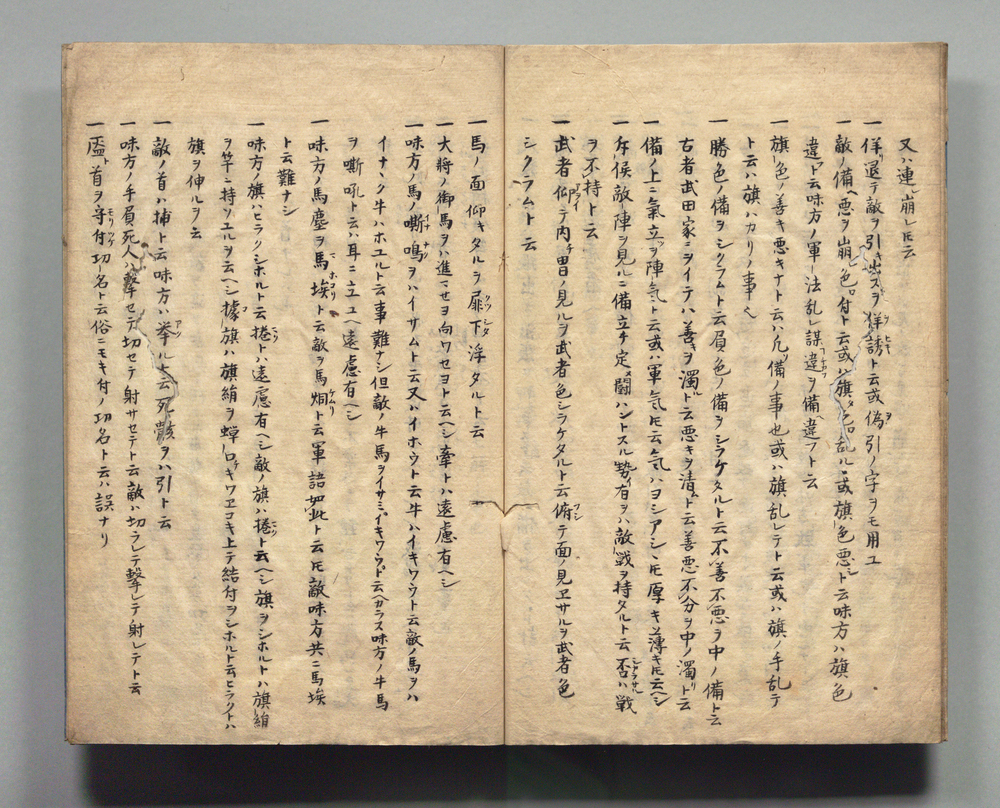 又ハ連崩レ𪜈云
一佯退テ敵ヲ引キ出スヲ佯誘ト云或偽引ノ字ヲモ用ユ
一敵ノ備ヘ悪ヲ崩色付ト云或ハ旗色乱ル或旗色悪シト云味方ハ旗色
違フト云味方ノ軍法乱レ謀違ヲ備ヘ違フト云
一旗色ノ善キ悪キナト云ハ凡備ノ事也或ハ旗乱レテト云或ハ旗ノ手乱テ
ト云ハ旗ハカリノ事也
一勝色ノ備ヲシクラムト云負色ノ備ヲシラケタルト云不善不悪ヲ中ノ備ト云
古者武田家ニヲイテハ善ヲ濁ルト云悪キヲ清ト云善悪不分ヲ中ノ濁リト云
一備ノ上ニ氣立ヲ陣氣ト云或ハ軍氣𪜈云氣ハヨシアシ𪜈厚キ薄キ𪜈云ヘシ
一斥候敵陣ヲ見ルニ備立チ定メ闘ハントスル勢有ヲハ敵戦ヲ持タルト云否ハ戦
ヲ不持ト云
一武者仰テ内冑ノ見ルヲ武者色シラケタルト云俯テ面ノ見ヱサルヲ武者色
シクラムト云
一馬ノ面仰キタルヲ屝下浮タルト云
一大将ノ御馬ヲハ進マセヨ向ワセヨト云ヘシ牽トハ遠慮有ヘシ
一味方ノ馬ノ嘶鳴ヲハイサムト云又ハイホウト云牛ハイキワウト云敵ノ馬ヲハ
イナヽク牛ハホエルト云事難ナシ但敵ノ牛馬ヲイサミイキワウト云ヘカラス味方ノ牛馬
ヲ嘶吼ト云ハ耳ニ立ユヘ遠慮有ヘシ
一味方ノ馬塵ヲ馬埃ト云敵ヲ馬烟ト云軍語如此ト云𪜈敵味方共ニ馬埃
ト云難ナシ
一味方ノ旗ハヒラクシホルト云捲トハ遠慮有ヘシ敵ノ旗ハ捲ト云ヘシ旗ヲシホルトハ旗絹
ヲ竿ニ持ソエルヲ云ヘシ據旗ハ旗絹ヲ蝉口キワヱコキ上テ結付ヲシホルト云ヒラクトハ
旗ヲ伸ルヲ云
一敵ノ首ハ捕ト云味方ハ挙ルト云死骸ヲハ引ト云
一味方ノ手負死人ハ撃セテ切セテ射サセテト云敵ハ切ラレテ撃レテ射レテト云
一盃首ヲ守付功名ト云俗ニモキ付ノ功名ト云ハ誤ナリ